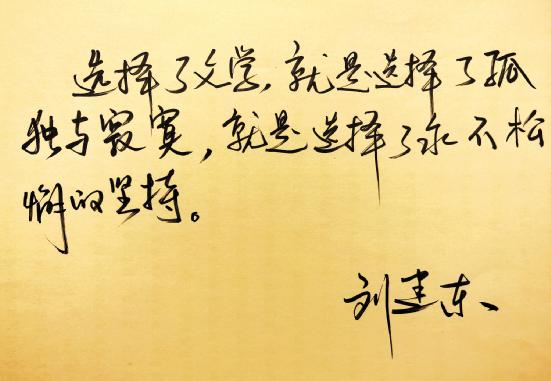 选择了文学，就是选择了孤
独与寂寞，就是选择了永不松
懈的坚持。
刘建东